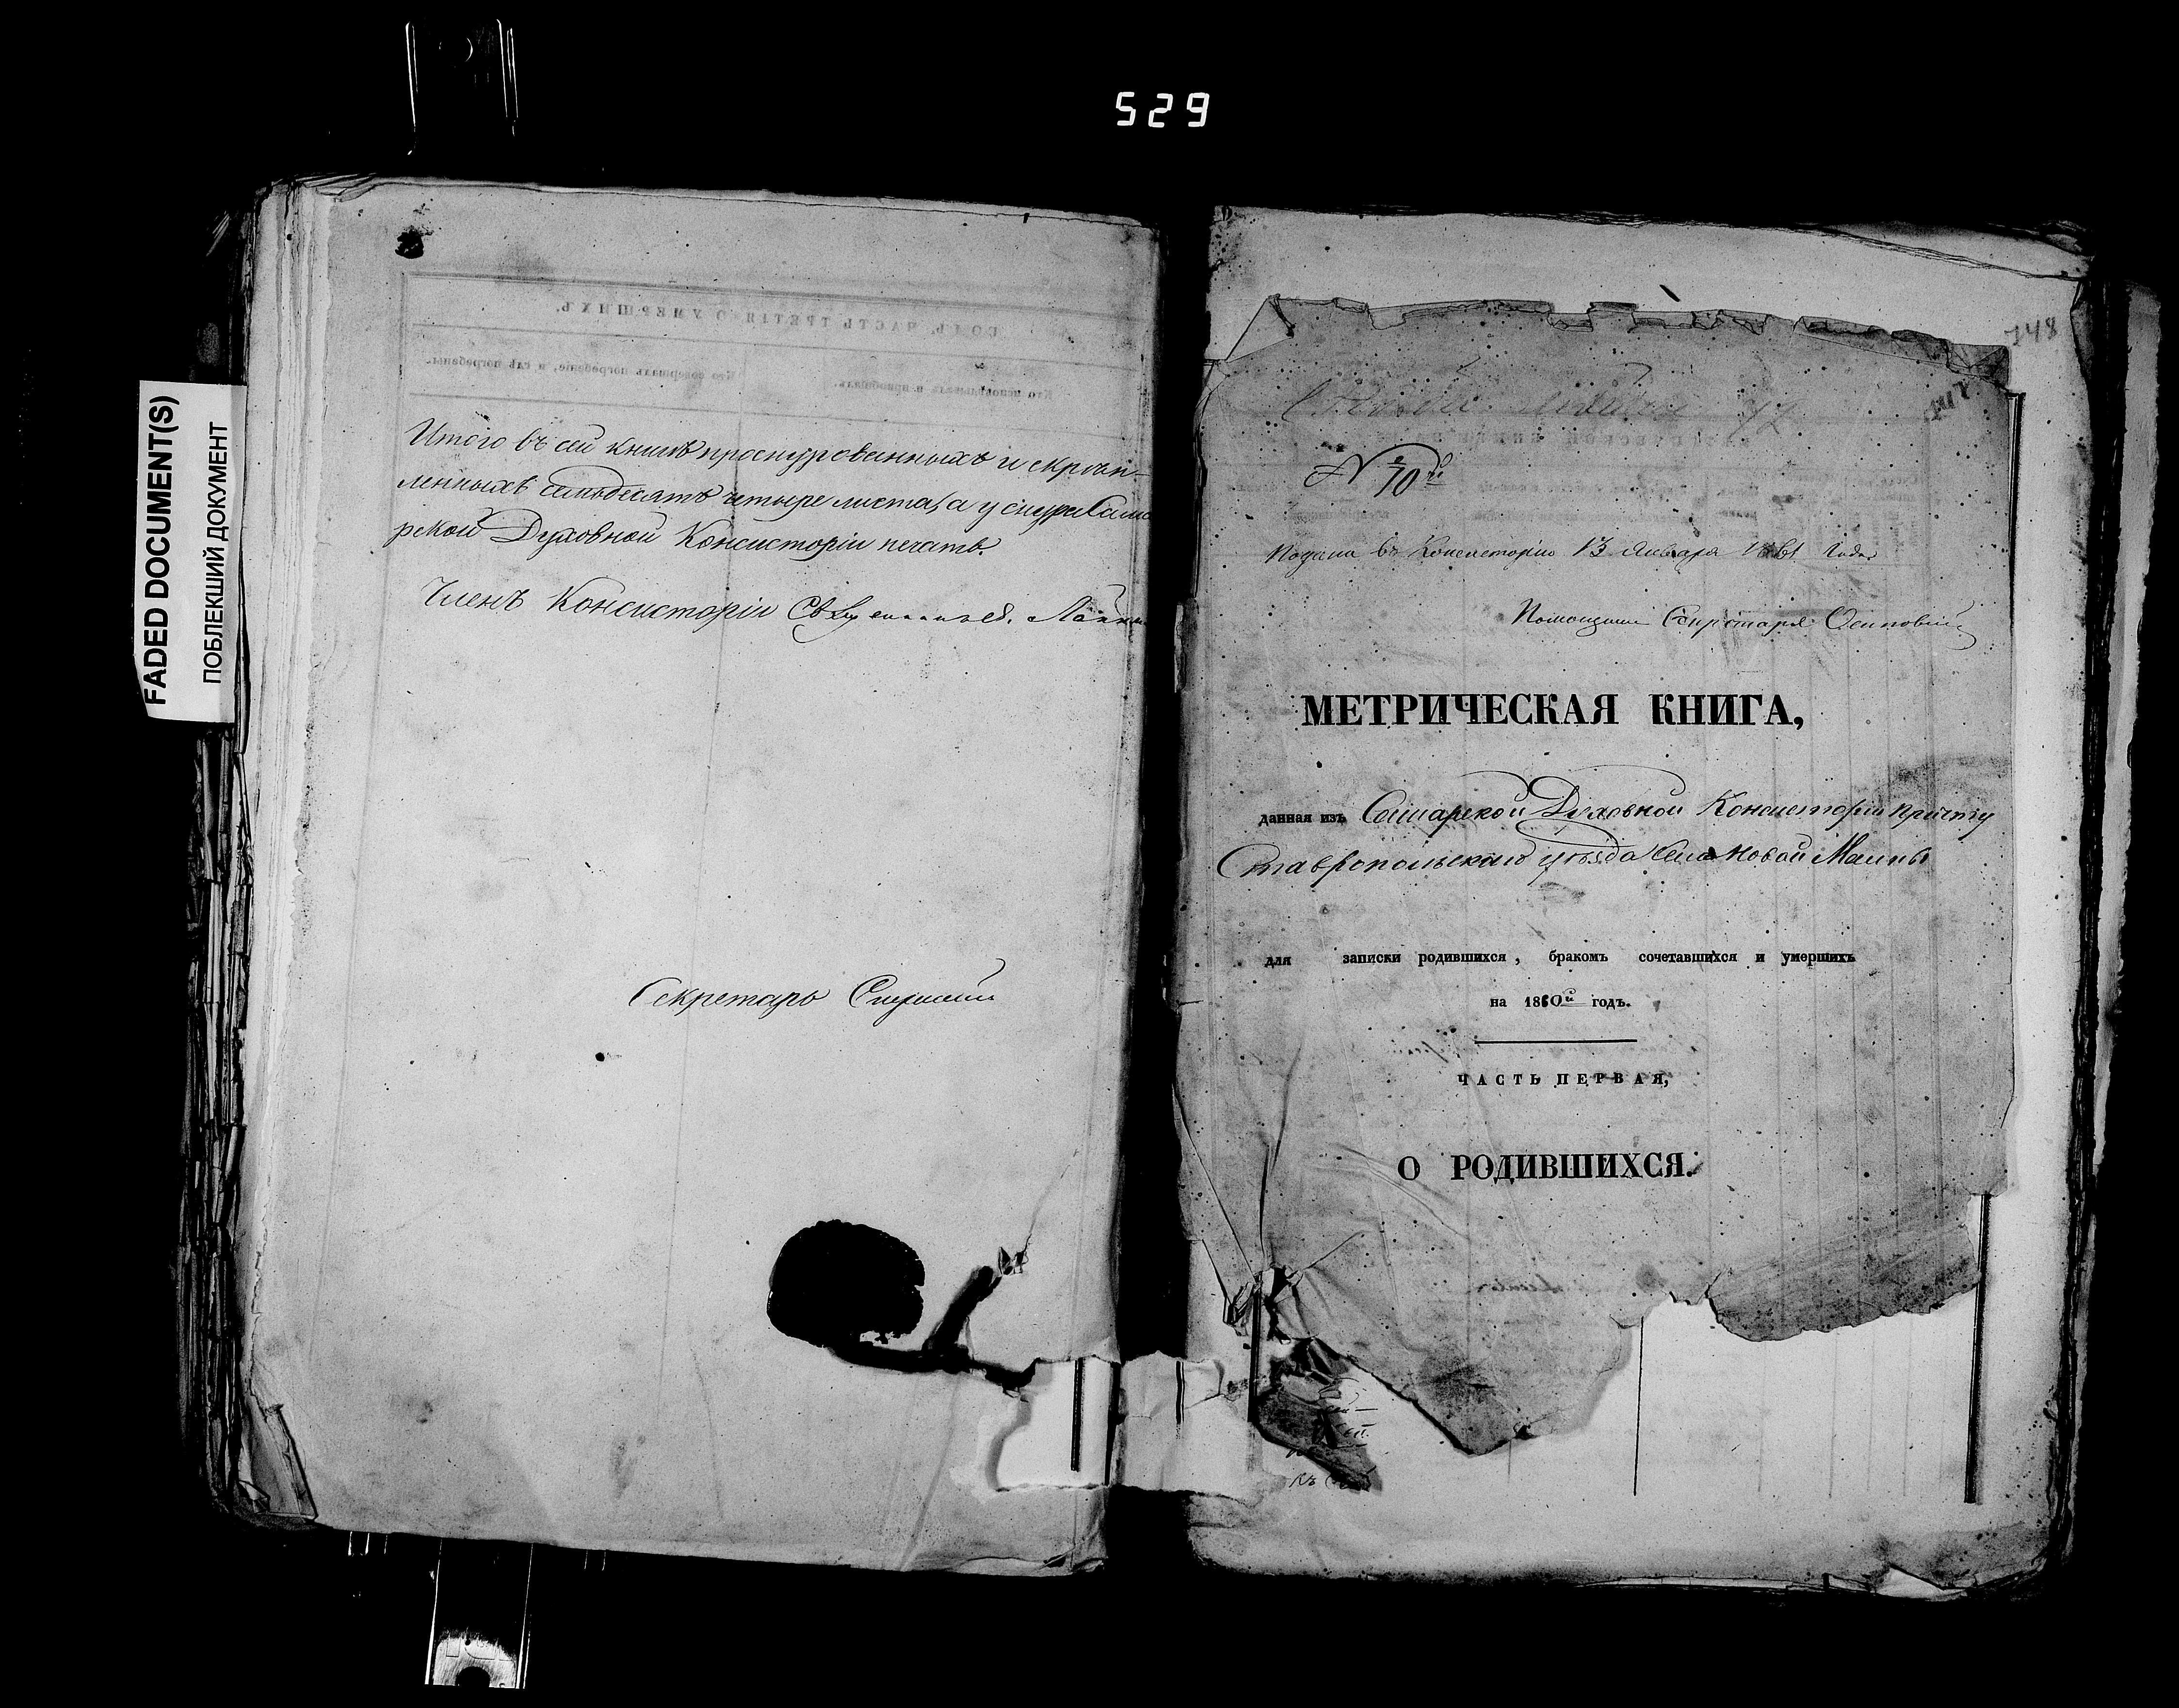 529
FADED DOCUMENT(S)
ПОБЛЕКШИЙ ДОКУМЕНТ
ГОДЪ, ЧАСТЬ ТРЕТІЯ О УМЕРШИХЪ.
Кто исповѣдывалъ и пріобщалъ.
Кто совершалъ погребеніе, и гдѣ погребены.
Итого въ сей книгѣ прошнурованныхъ и скрѣп-
ленныхъ семьдесятъ четыре листа, а у снура Сама
рской Духовной Консисторіи печать.
Членъ Консисторіи
Секретарь
148
№ 70й
Подана въ Консисторію 13 Января 1861 года
Помощникъ Секретаря
МЕТРИЧЕСКАЯ КНИГА,
данная изъ Самарской Духовной Консисторіи причту
Ставропольскаго уѣзда Села Новой Маины
для записки родившихся, бракомъ сочетавшихся и умершихъ
на 1860й годъ.
ЧАСТЬ ПЕРВАЯ,
О РОДИВШИХСЯ.